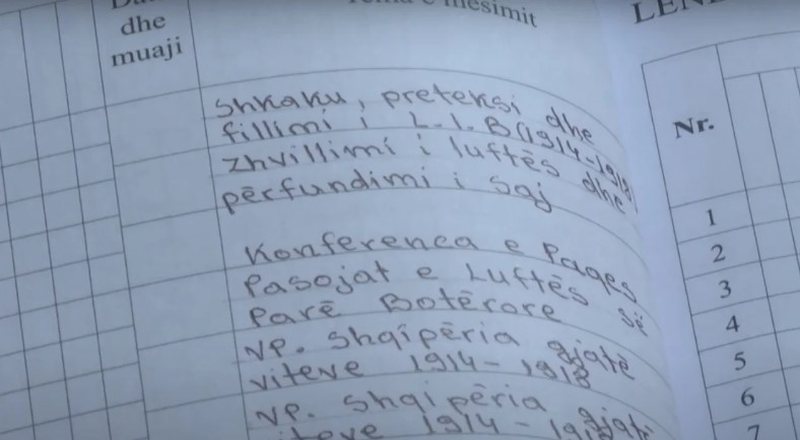 dhe
muaji
mësimit
Shkaku, preteksi dhe
fillimi i L.I.B(1914-1918)
zhvillimi i luftës dhe
përfundimi i saj
Konferenca e Paqes
Pasojat e Luftës së
Parë Botërore
NP. Shqipëria gjatë
viteve 1914-1918
NP. Shqipëria gjatë
viteve 1914-1918
Nr.
1
2
3
4
5
6
7